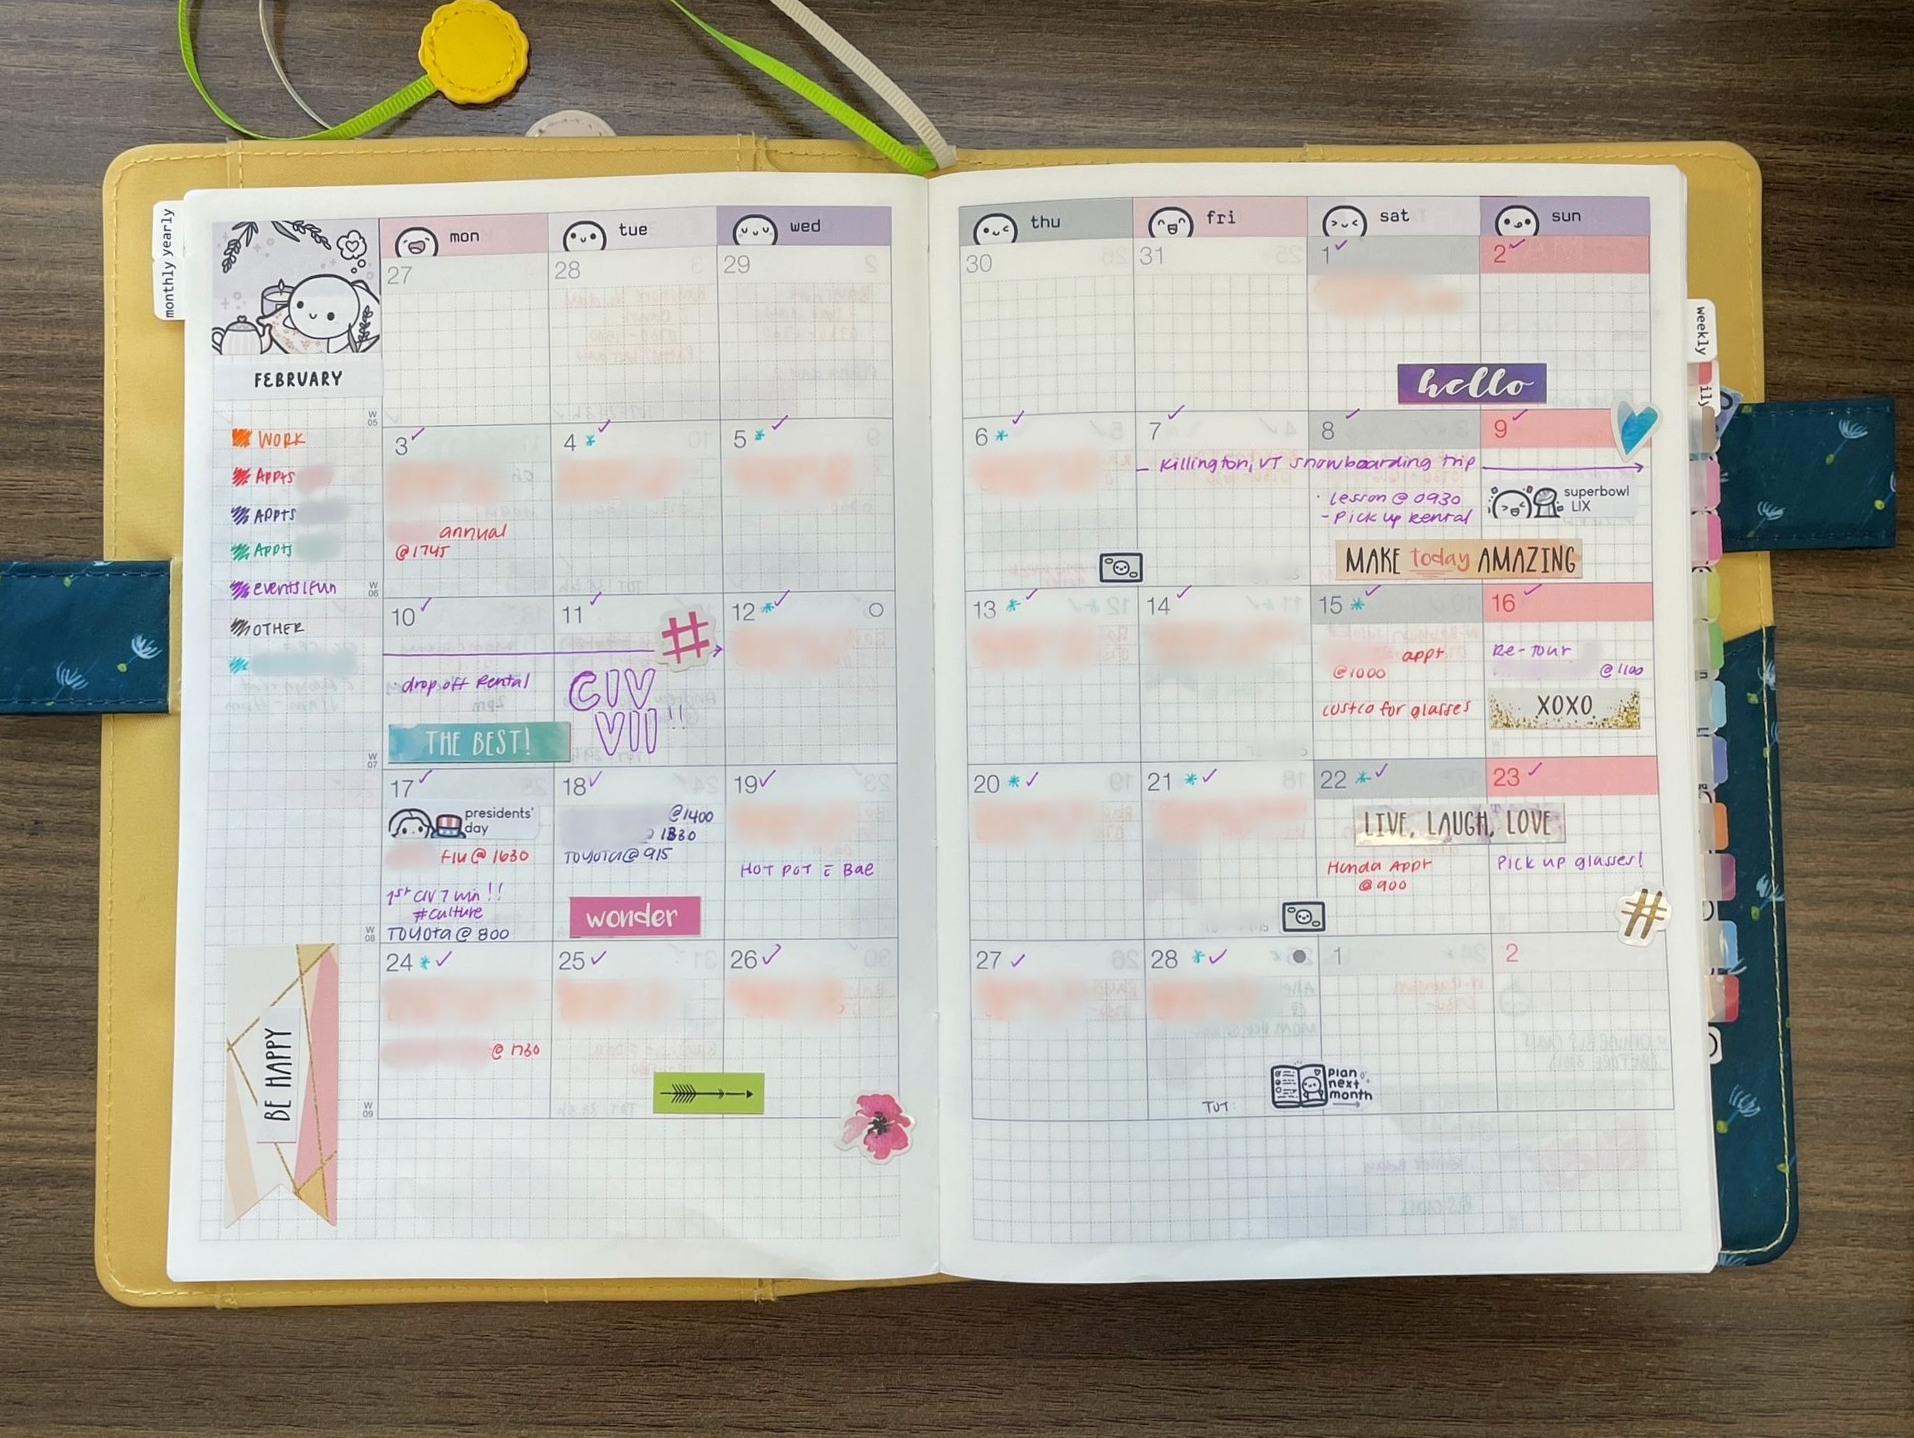 monthly yearly
mon
tue
wed
thu
fri
sat
sun
FEBRUARY
27
28
29
30
31
1
2
hello
W
05
WORK
APPTS
APPTS
APPTS
events/fun
OTHER
3
4
5
6
7
8
9
annual
@1745
Killington, VT snowboarding trip
· Lesson @ 0930
- Pick up Rental
superbowl
LIX
MAKE today AMAZING
W
06
10
11
12
13
14
15
16
· drop off Rental
THE BEST!
#
CIV
VII!!
appt
@1000
Costco for glasses
Re-Tour
@1100
XOXO
W
07
17
18
19
20
21
22
23
presidents'
day
FLU @ 1630
1st CIV 7 win!!
#culture
TOYOTA @ 800
@1400
TOYOTA @ 915
wonder
HOT POT c̄ Bae
LIVE, LAUGH, LOVE
Honda Appt
@900
Pick up glasses!
#
W
08
24
25
26
27
28
1
2
@ 1730
TUT
plan
next
month
W
09
BE HAPPY
weekly
ily